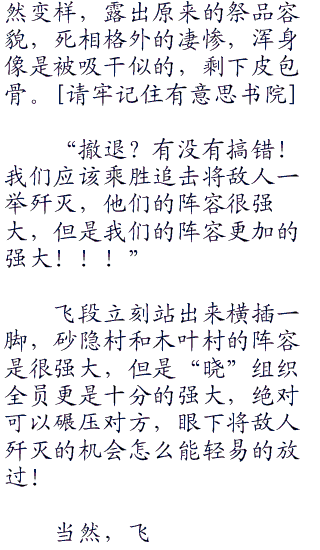 然变样，露出原来的祭品容
貌，死相格外的凄惨，浑身
像是被吸干似的，剩下皮包
骨。[请牢记住有意思书院]
“撤退？有没有搞错！
我们应该乘胜追击将敌人一
举歼灭，他们的阵容很强
大，但是我们的阵容更加的
强大！！！”
飞段立刻站出来横插一
脚，砂隐村和木叶村的阵容
是很强大，但是“晓”组织
全员更是十分的强大，绝对
可以碾压对方，眼下将敌人
歼灭的机会怎么能轻易的放
过！
当然，飞